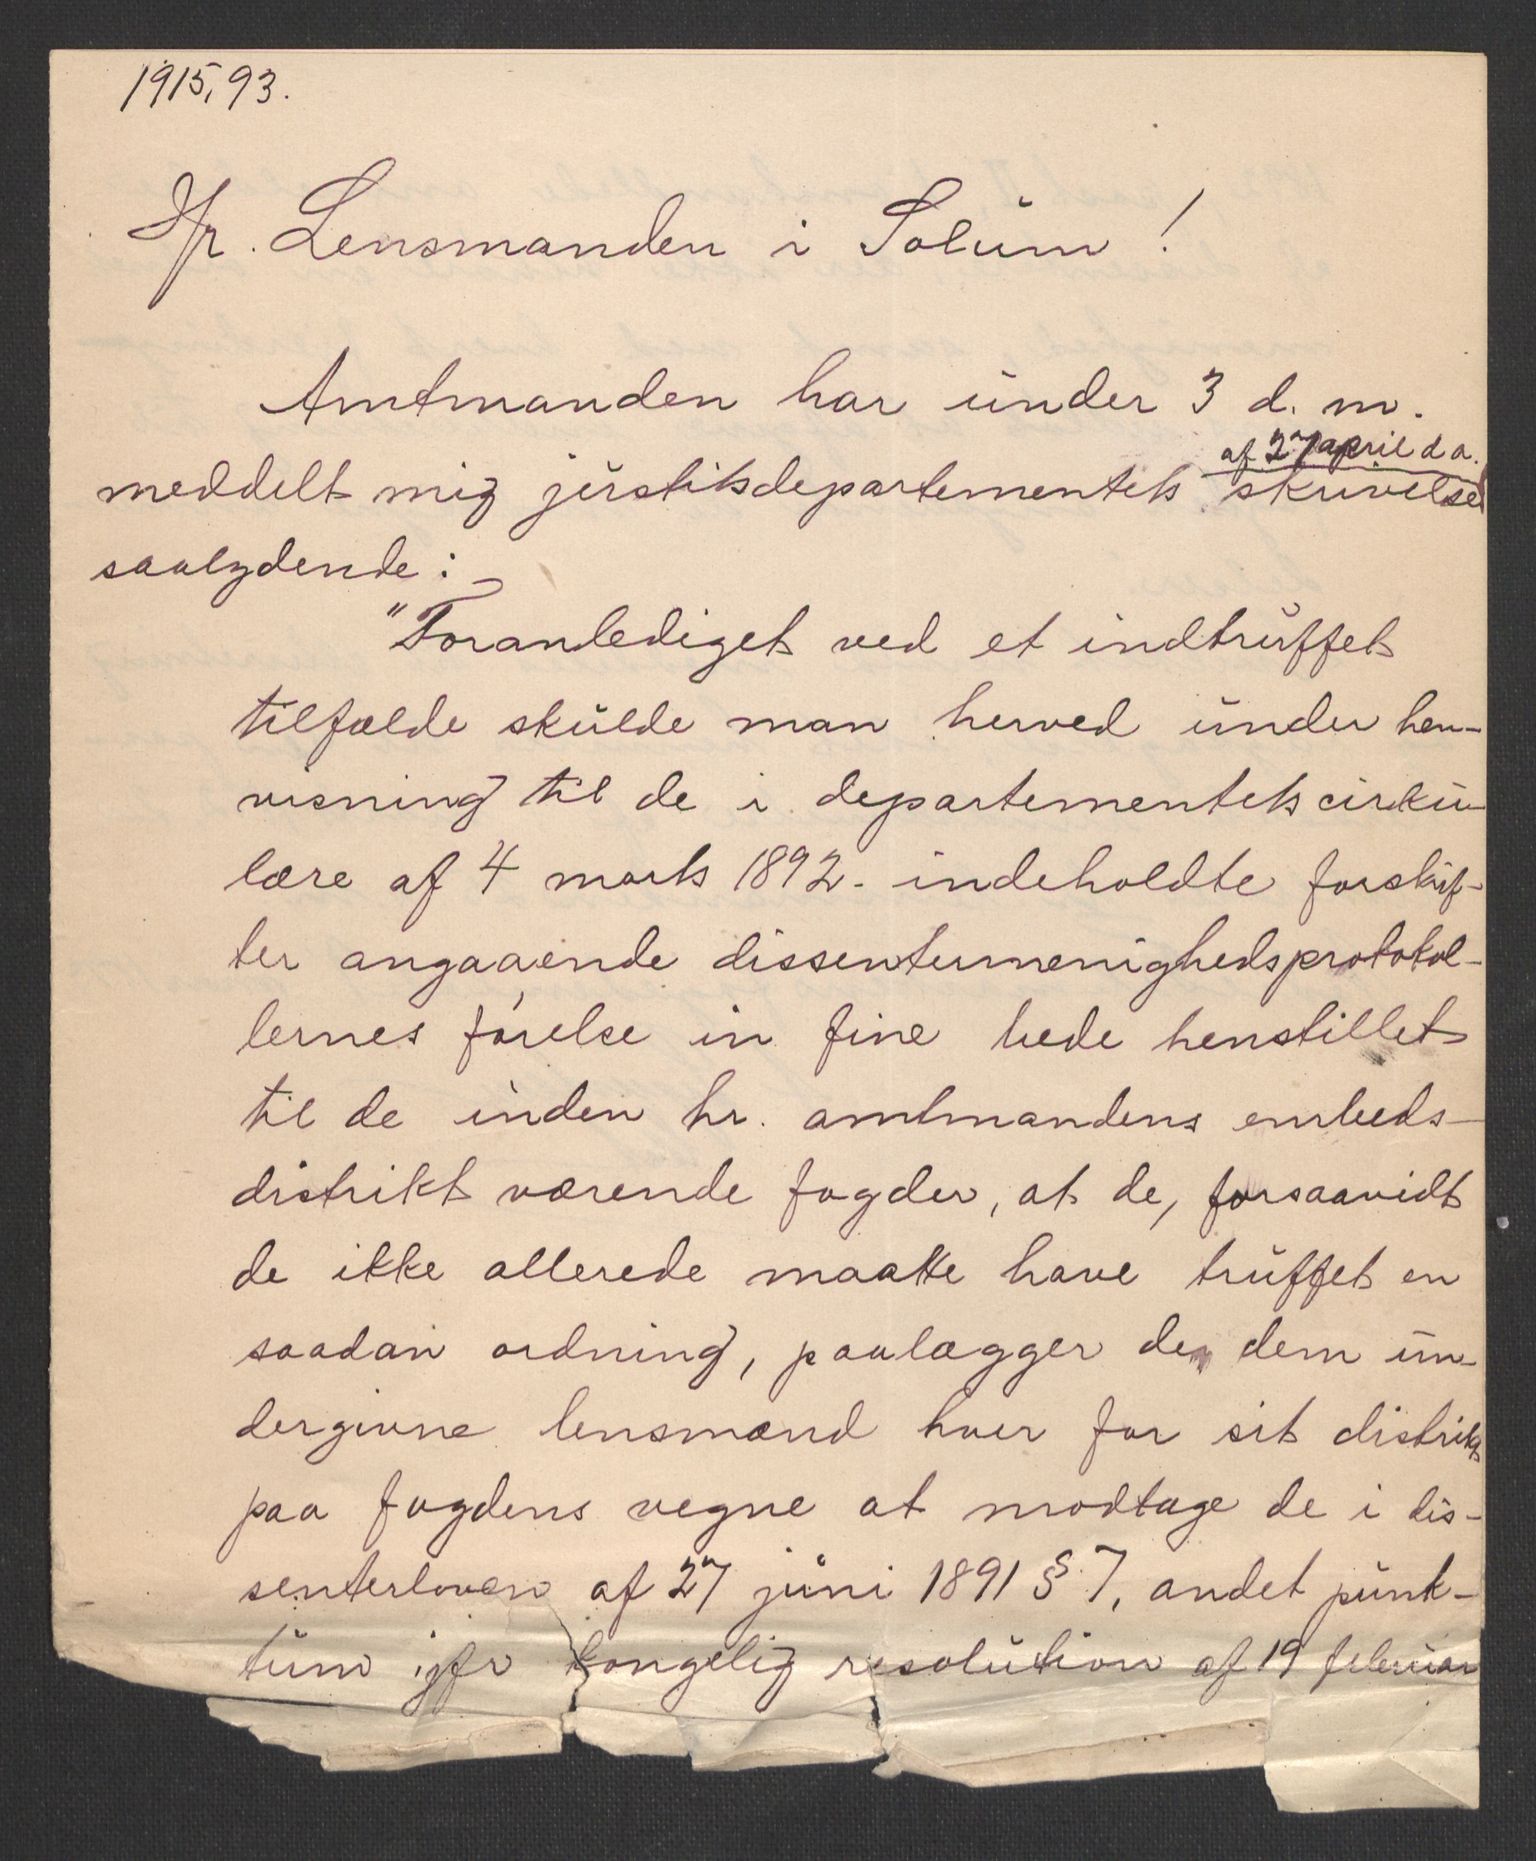 1915,93.
Hr. Lensmanden i Solum!
Amtmanden har under 3 d. m.
af 27 april d a.
meddelt mig justitsdepartementets skrivelse
saalydende:
"Foranlediget ved et indtruffet
tilfælde skulde man herved under hen-
visning til de i departementets cirku-
lære af 4 marts 1892 indeholdte forskrif-
ter angaaende dissentermenighedsprotokol-
lernes førelse in fine bede henstillet
til de inden hr. amtmandens embeds-
distrikt værende fogder, at de, forsaavidt
de ikke allerede maatte have truffet en
saadan ordning, paalægger de dem un-
dergivne lensmænd hver for sit distrikt
paa fogdens vegne at modtage de i dis-
senterloven af 27 juni 1891 § 7, andet punk-
tum jfr kongelig resolution af 19 februar